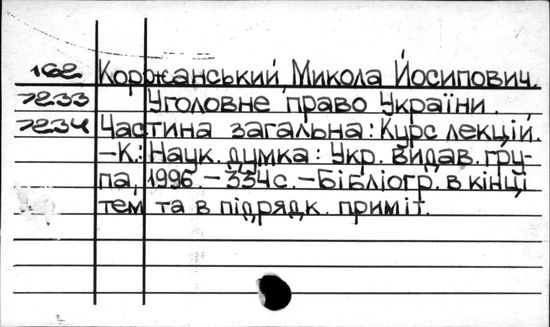 162 Коржанський, Микола Йосипович.
7233 Уголовне право України.
7234 Частина загальна: Курс лекцій.
–К.: Наук. думка: Укр. видав. гру-
па, 1996. – 334 с. – Бібліогр. в кінці
тем та в підрядк. приміт.